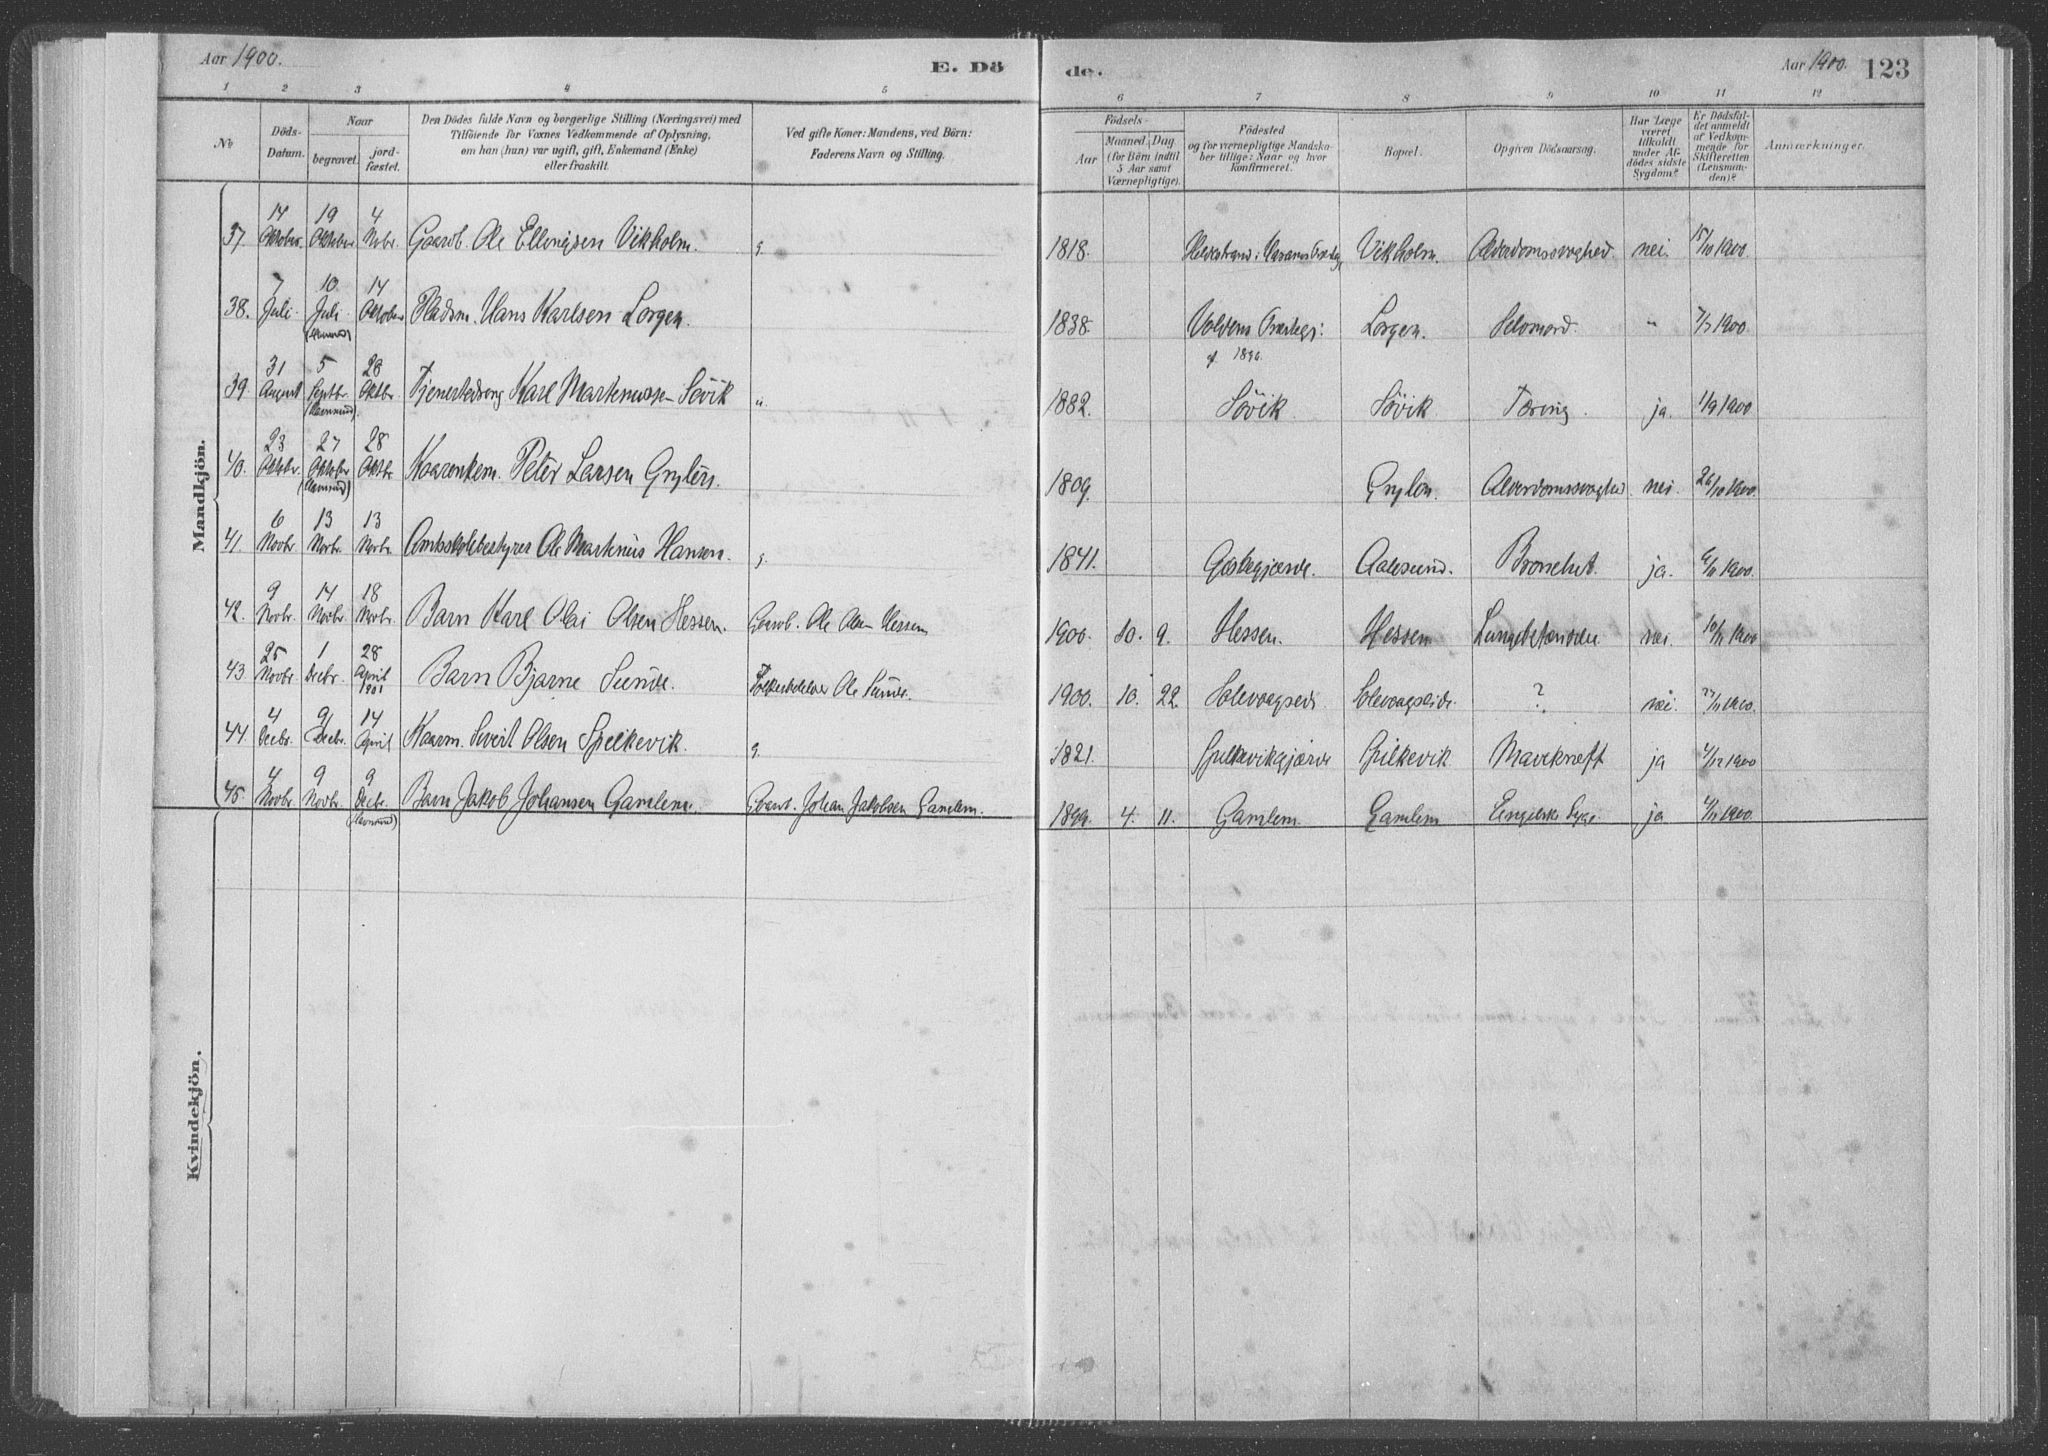 Aar 1900. E. Dö
1 2 3 4 5
No Döds-Datum. Naar begravet. jordfæstet. Den Dödes fulde Navn og borgerlige Stilling (Næringsvei) med Tilföiende for Voxnes Vedkommende af Oplysning, om han (hun) var ugift, gift, Enkemand (Enke) eller fraskilt. Ved gifte Koner: Mandens, ved Börn: Faderens Navn og Stilling.
Mandkjön.
37. 14 Oktober. 19 Oktober 4 Novbr. Gaardb. Ole Ellingsen Vikholm. g.
38. 7 Juli 10 Juli (Havnsund) 14 Oktober Pladsm. Hans Karlsen Lorgen.
39. 31 August 5 Septbr. (Havnsund) 28 Oktbr. Tjenestedreng Karl Martinussen Sövik "
40. 23 Oktbr. 27 Oktober (Havnsund) 28 Oktbr. Kaarenkem. Peter Larsen
41. 6 Novbr. 13 Novbr. 13 Novbr. Amtsskolebestyrer Ole Martinus Hansen. g.
42. 9 Novbr. 14 Novbr. 18 Novbr. Barn Karl Olai Olsen Hessen. Gaardb. Ole Olsen Hessen
43 25 Novbr. 1 Decbr. 28 April 1901 Barn Bjarne Sunde. Ole Sunde.
44. 4 Decbr. 9 Decbr. 14 April Kaarm. Sivert Olsen Spilkevik. g.
45. 4 Novbr. 9 Novbr. 9 Decbr. (Havnsund) Barn Jakob Johansen Gamlem. Gaardb. Johan Jakobsen Gamlem.
Kvindekjön.
de. Aar 1900. 123
6 7 8 9 10 11 12
Födsels- Aar Maaned. Dag (for Börn indtil 5 Aar samt Værnepligtige). Födested og for værnepligtige Mandskaber tillige: Naar og hvor konfirmeret. Bopæl. Opgiven Dödsaarsag. Har Læge været tilkaldt under Afdödes sidste Sygdom? Er Dödsfaldet anmeldt af Vedkommende for Skifteretten (Lensmanden)? Anmærkninger.
1818. Vikholm. Alderdomssvaghed. nei. 15/10 1900.
1838. Voldens Præstegj: Lorgen. Selvmord. " 7/7 1900.
1882. Sövik. Sövik Tæring. ja. 1/9 1900
1809. Alderdomssvaghed nei. 26/10 1900.
1841. Aalesund. Bronchit. ja. 6/11 1900.
1900. 10. 9. Hessen. Hessen Lungebetændelse nei. 10/11 1900
1900. 10. 22. Solevaagseide Solevaagseide. ? nei. 27/11 1900.
1821. Spilkevikgjærde Spilkevik Mavekræft ja 4/12 1900
1899. 4. 11. Gamlem. Gamlem Engelske Syge. ja 4/11 1900.